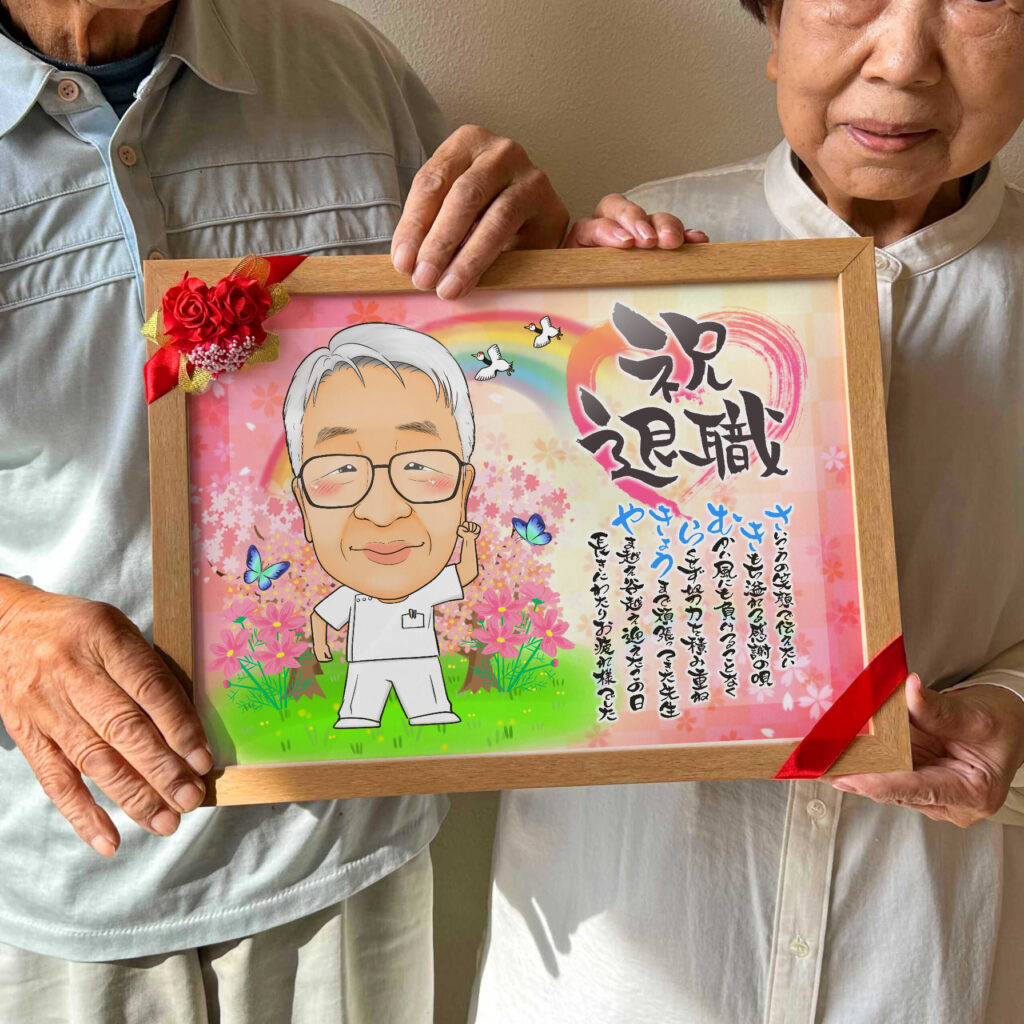 祝
退職
さいごの笑顔で伝えたい
きもち溢れる感謝の唄
むかい風にも負けることなく
らくせず努力を積み重ね
きょうまで頑張ってきた先生
やま越え谷越え迎えたこの日
長きにわたりお疲れ様でした